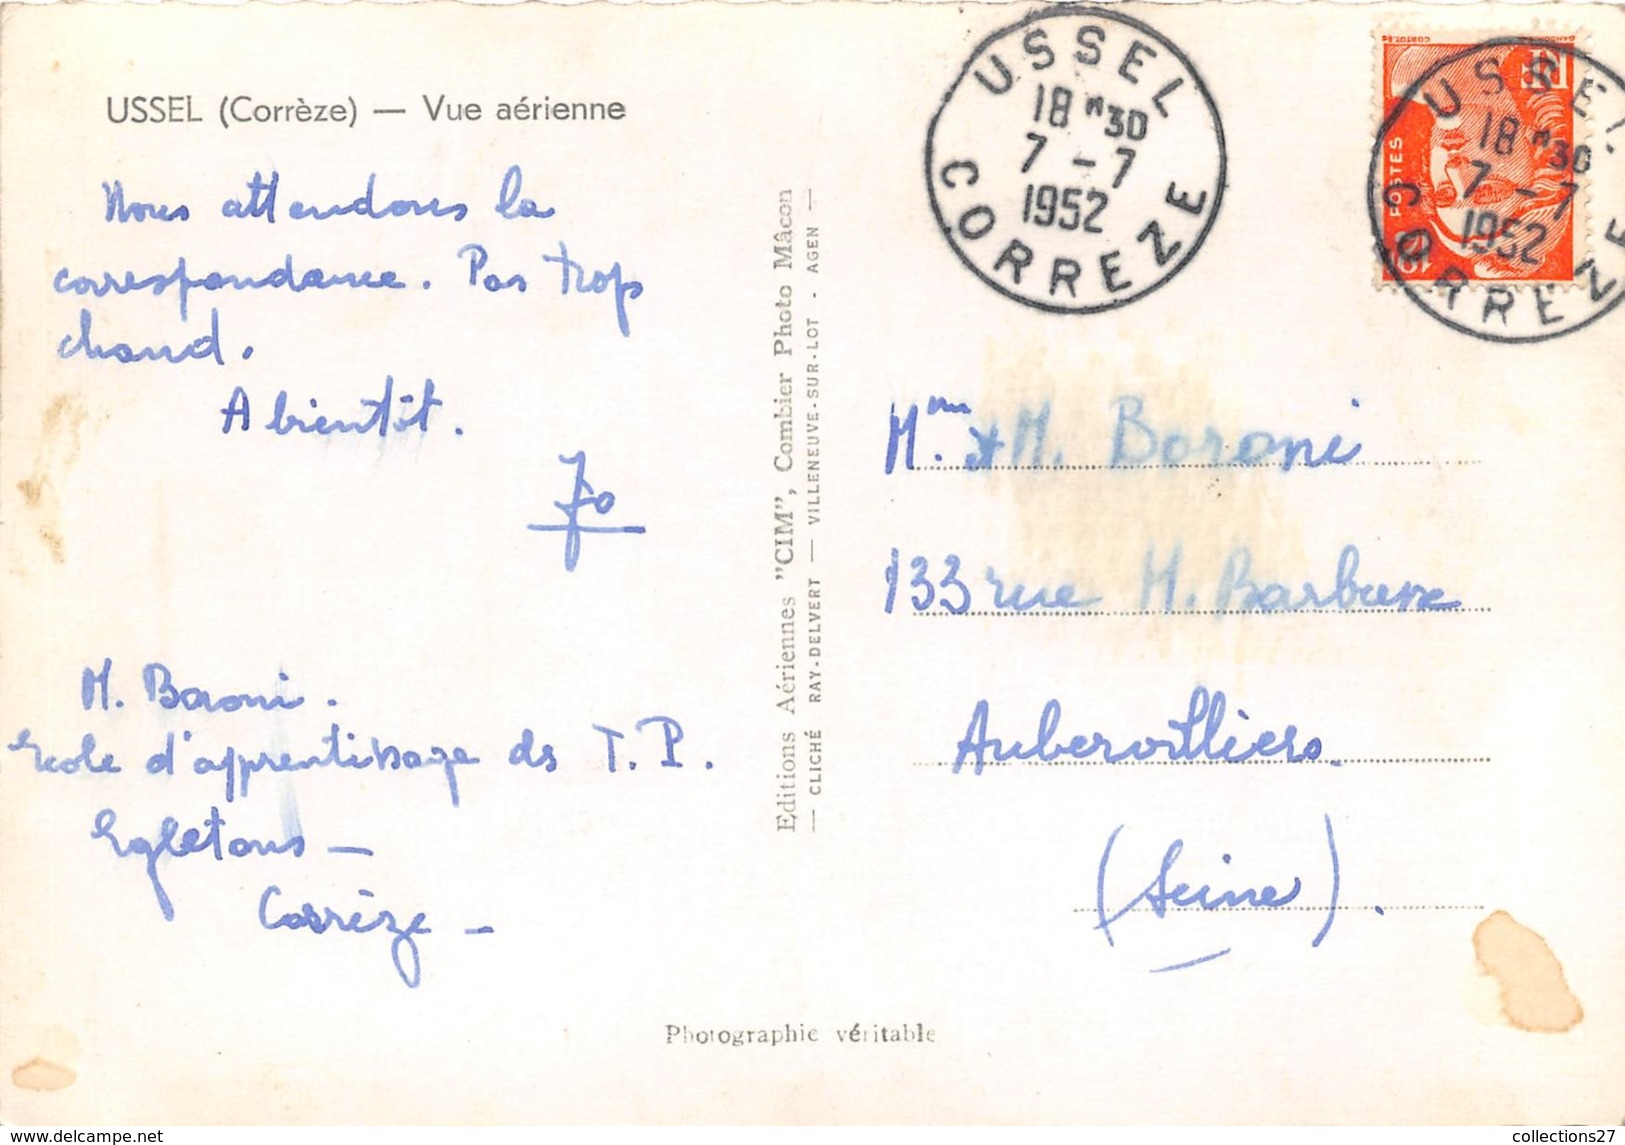 USSEL (Corrèze) — Vue aérienne
Nous attendons la
correspondance. Pas trop
chaud.
A bientôt.
Jo
M. Baroni.
Ecole d'apprentissage ds T.P.
Egletons —
Corrèze —
Editions Aériennes "CIM", Combier Photo Mâcon
— CLICHÉ RAY-DELVERT — VILLENEUVE-SUR-LOT - AGEN —
USSEL
18 H 30
7 - 7
1952
CORREZE
POSTES
USSEL
18 H 30
7 - 7
1952
CORREZE
Mme. & M. Baroni
133 rue H. Barbusse
Aubervilliers.
(Seine).
Photographie véritable
collections27